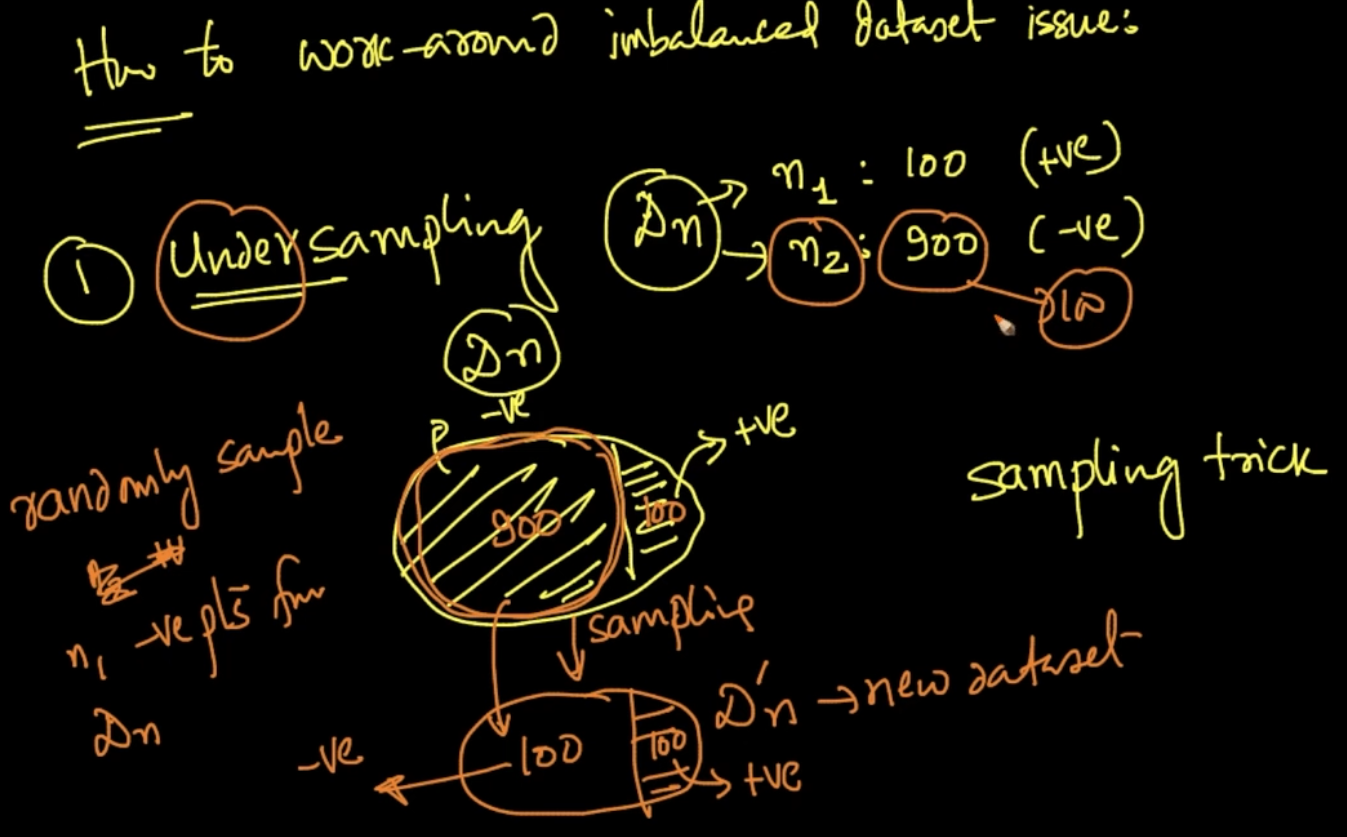 How to work-around imbalanced dataset issue:
① Undersampling
Dn → n₁ : 100 (+ve)
→ n₂ : 900 (-ve)
→ 100
Dn
-ve
+ve
900 100
randomly sample
n₁ -ve pts from
Dn
sampling trick
sampling
D'n → new dataset
-ve
100 100
+ve